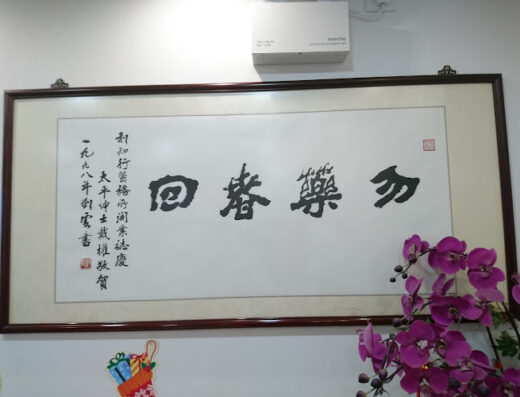 勿藥春回
知行醫務所開業誌慶
太平紳士戴權敬賀
一九九八年劉雲書